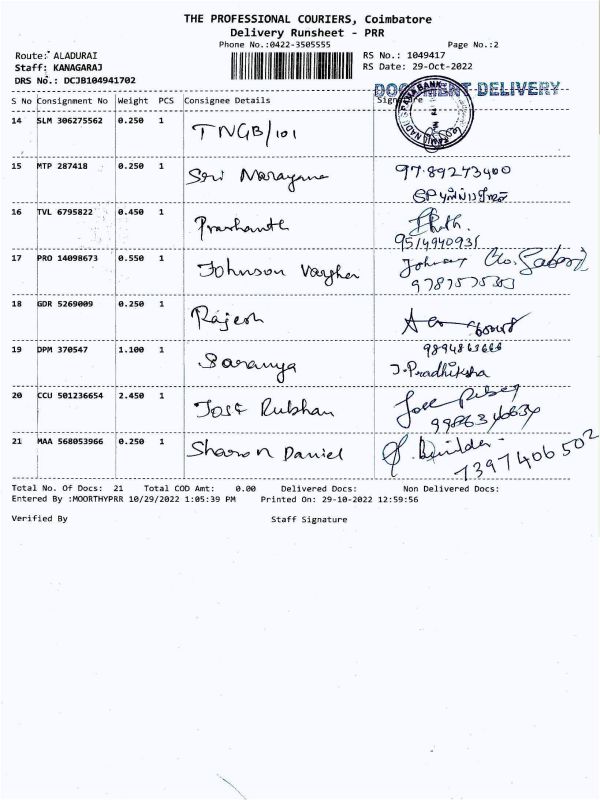 THE PROFESSIONAL COURIERS, Coimbatore
Delivery Runsheet - PRR
Phone No.:0422-3505555 Page No.:2
Route: ALADURAI RS No.: 1049417
Staff: KANAGARAJ RS Date: 29-Oct-2022
DRS No.: DCJB104941702
DOCUMENT DELIVERY
S No Consignment No Weight PCS Consignee Details Signature
14 SLM 306275562 0.250 1 TNGB/101
15 MTP 287418 0.250 1 Sri Narayana 9789273400
16 TVL 6795822 0.450 1 Prashanth
9514940931
17 PRO 14098673 0.550 1 Johnson Varghee Johnson C/o.
9787575383
18 GDR 5269009 0.250 1 Rajesh
19 DPM 370547 1.100 1 Saranya 9894863666
J.Pradhiksha
20 CCU 501236654 2.450 1 Jose Rubhan Jose
9986346634
21 MAA 568053966 0.250 1 Sharon Daniel
7397406502
Total No. Of Docs: 21 Total COD Amt: 0.00 Delivered Docs: Non Delivered Docs:
Entered By :MOORTHYPRR 10/29/2022 1:05:39 PM Printed On: 29-10-2022 12:59:56
Verified By Staff Signature